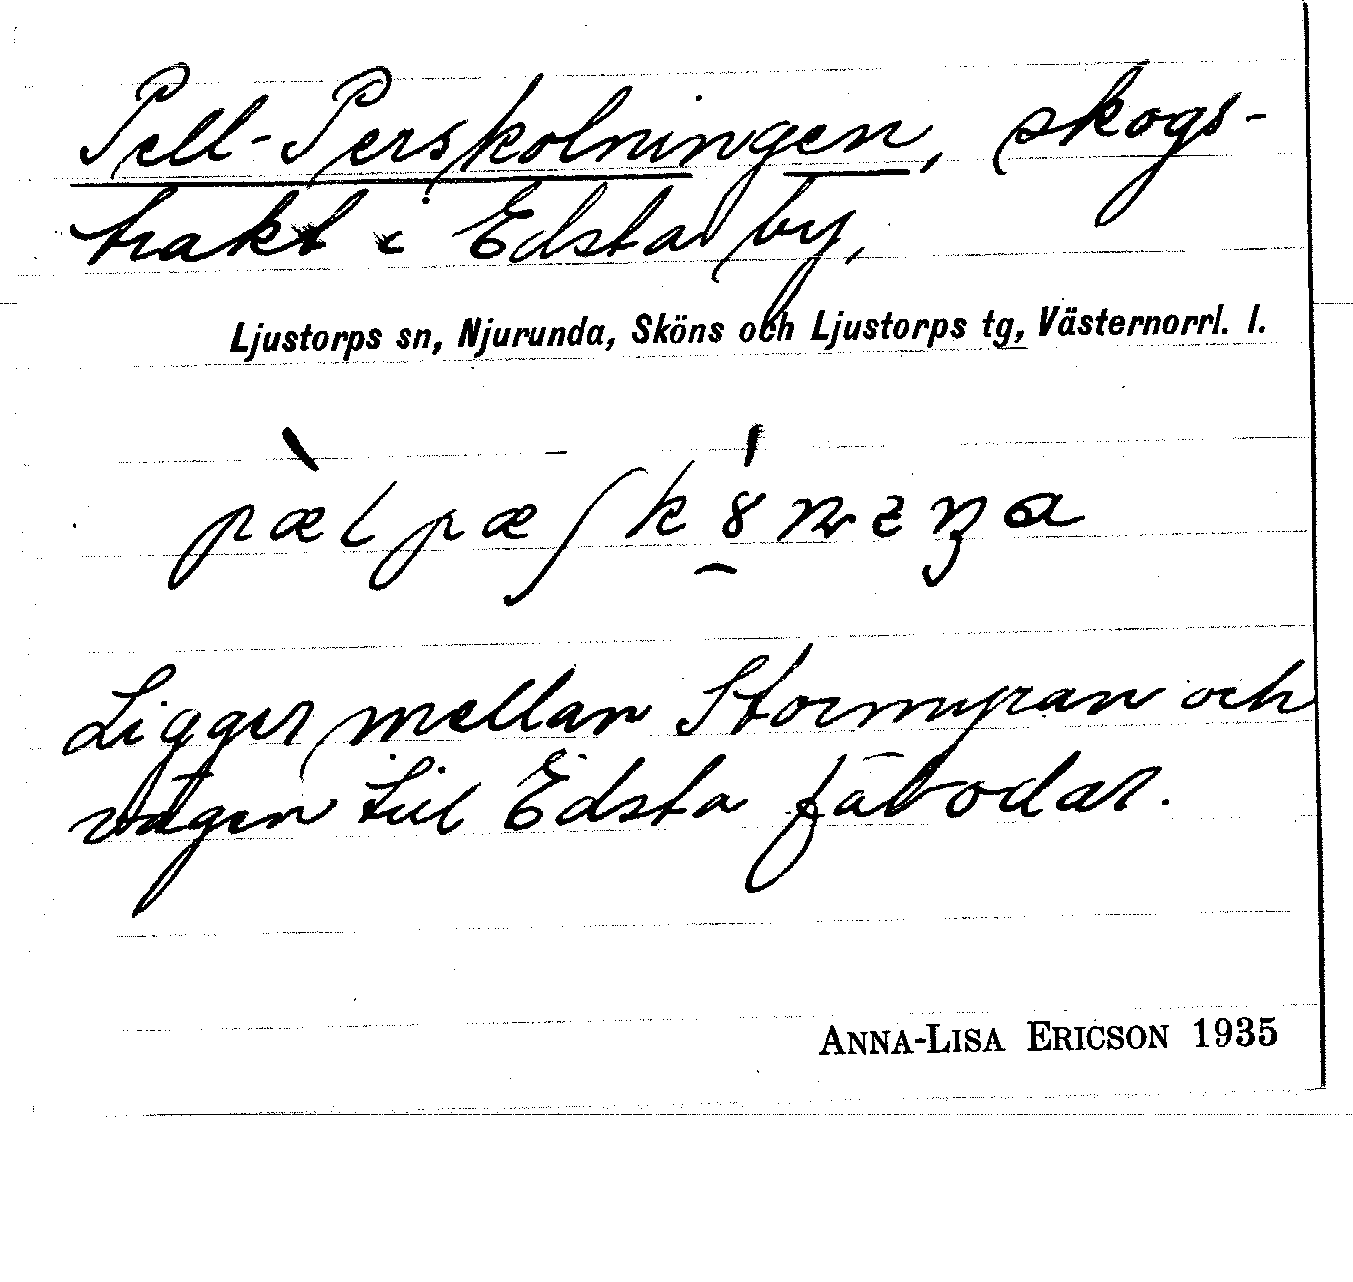 Pell-Perskolningen, skogs-
trakt i Edsta by,
Ljustorps sn, Njurunda, Sköns och Ljustorps tg, Västernorrl. l.
Ligger mellan Stormyran och
vägen till Edsta fäbodar.
ANNA-LISA ERICSON 1935